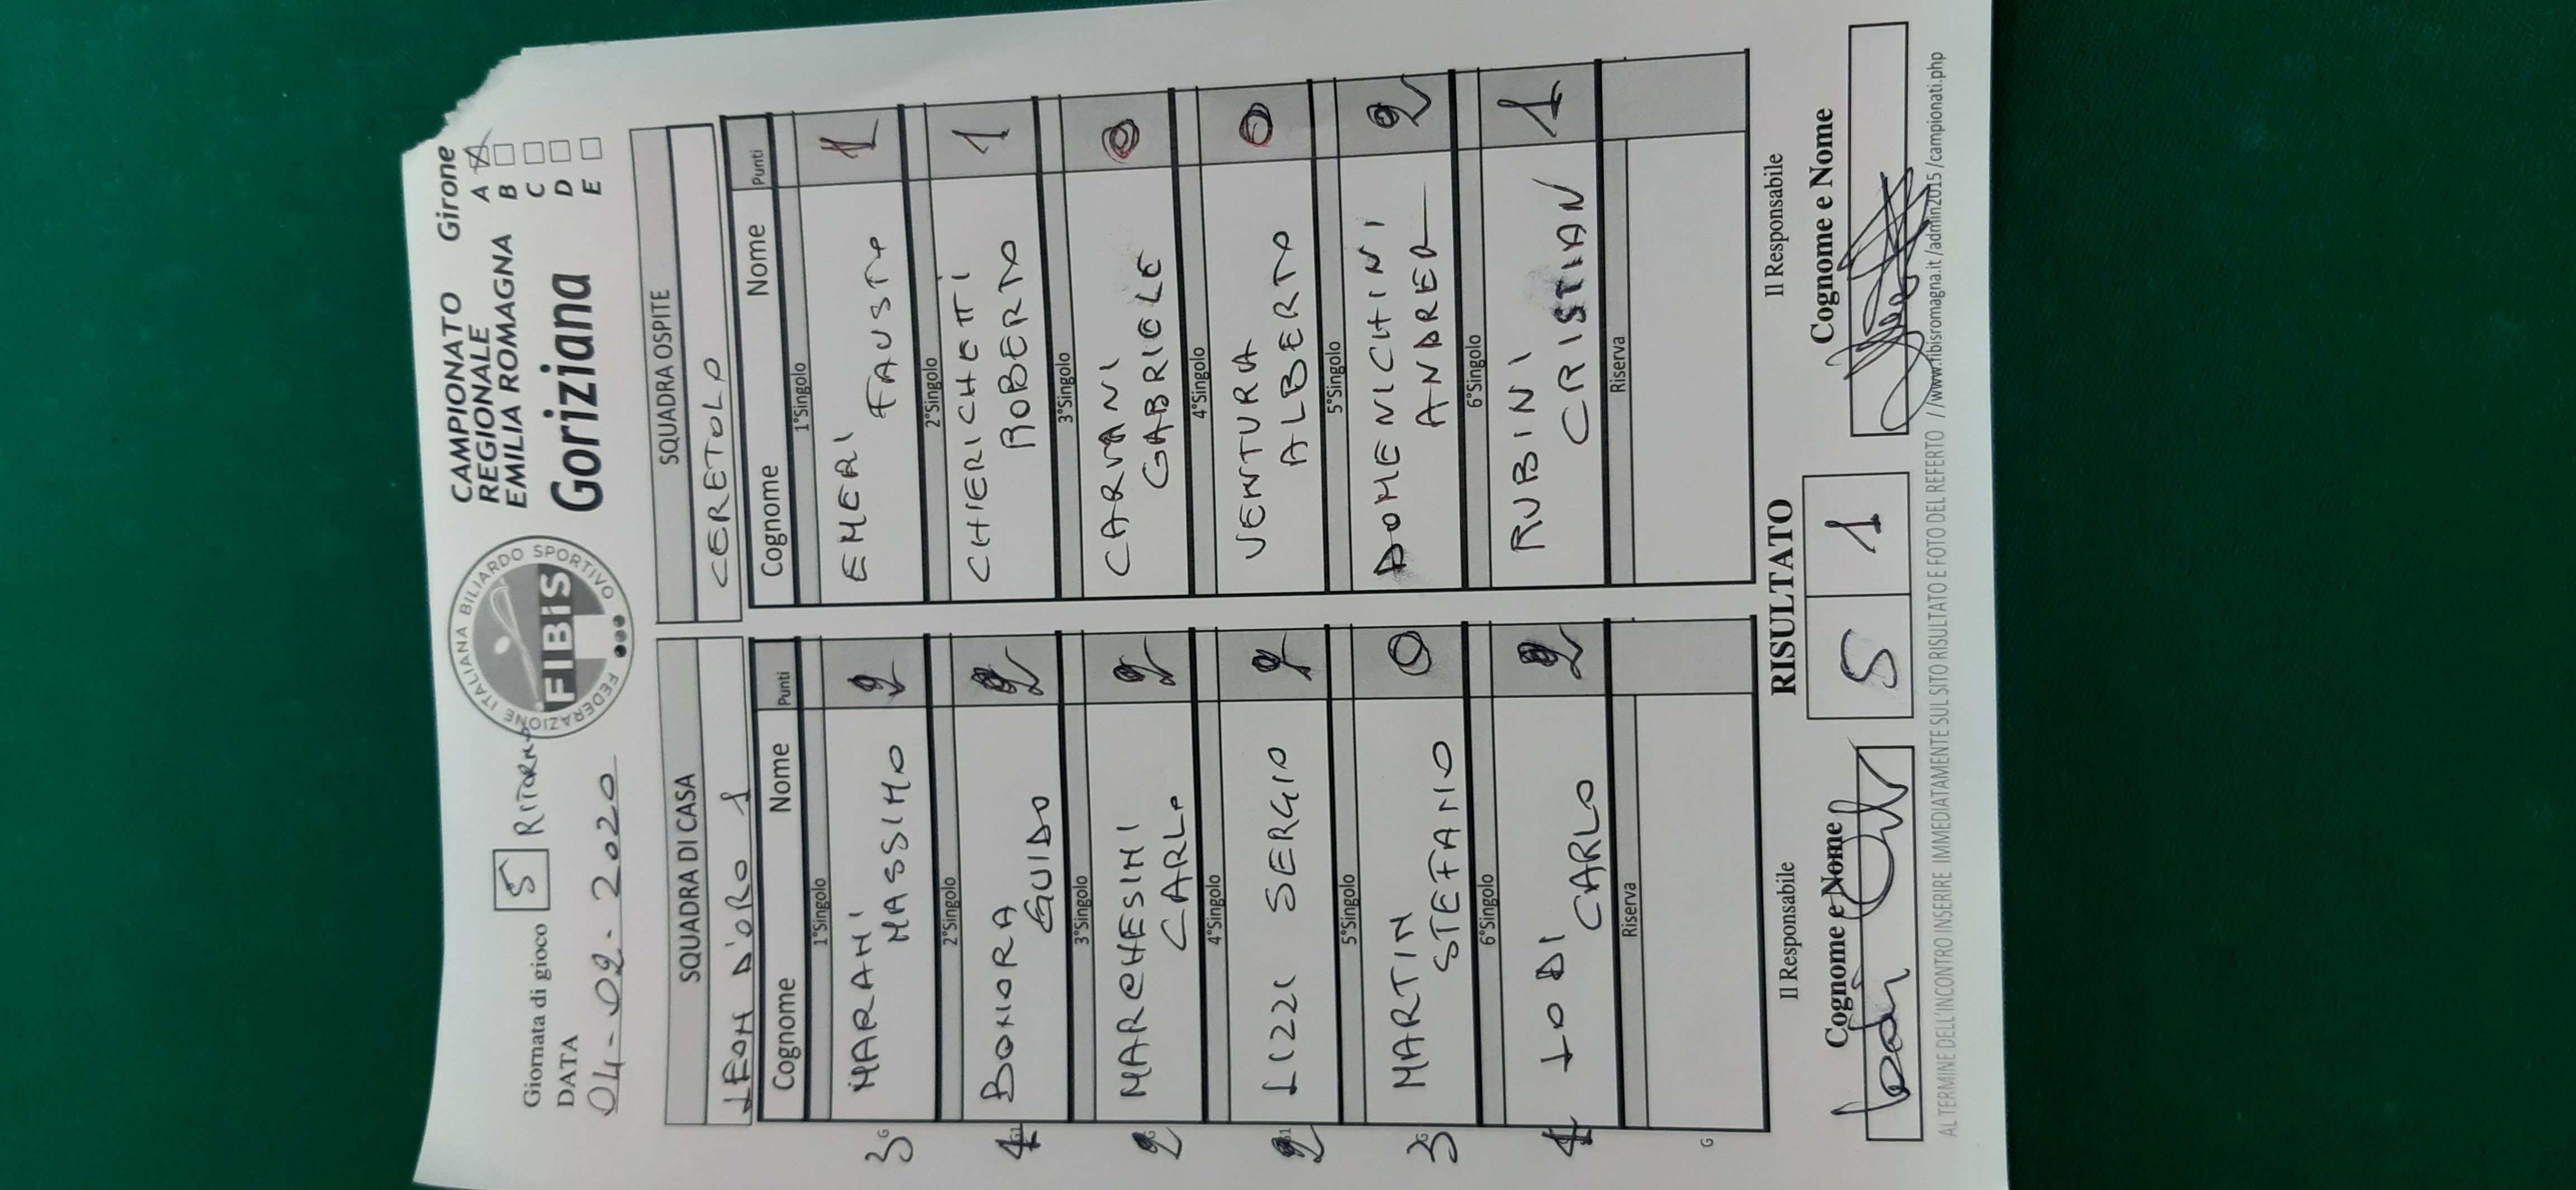 Giornata di gioco 5 RITORNO
DATA
04-02-2020
FEDERAZIONE ITALIANA BILIARDO SPORTIVO
FIBiS
CAMPIONATO
REGIONALE
EMILIA ROMAGNA
Goriziana
Girone
A
B
C
D
E
SQUADRA DI CASA
LEON D'ORO 1
Cognome Nome Punti
1°Singolo
3 G MARANI MASSIMO 2
2°Singolo
BONORA GUIDO 2
3°Singolo
2 MARCHESINI CARLO 2
4°Singolo
2 LIZZI SERGIO 2
5°Singolo
3 G MARTIN STEFANO 0
6°Singolo
LODI CARLO 2
Riserva
G
SQUADRA OSPITE
CERETOLO
Cognome Nome Punti
1°Singolo
EMERI FAUSTO 1
2°Singolo
CHIERICHETTI ROBERTO 1
3°Singolo
CARVANI GABRIELE 0
4°Singolo
VENTURA ALBERTO 0
5°Singolo
DOMENICHINI ANDREA 2
6°Singolo
RUBINI CRISTIAN 1
Riserva
Il Responsabile
Cognome e Nome
RISULTATO
5 1
Il Responsabile
Cognome e Nome
AL TERMINE DELL'INCONTRO INSERIRE IMMEDIATAMENTE SUL SITO RISULTATO E FOTO DEL REFERTO //www.fibisromagna.it/admin2015/campionati.php